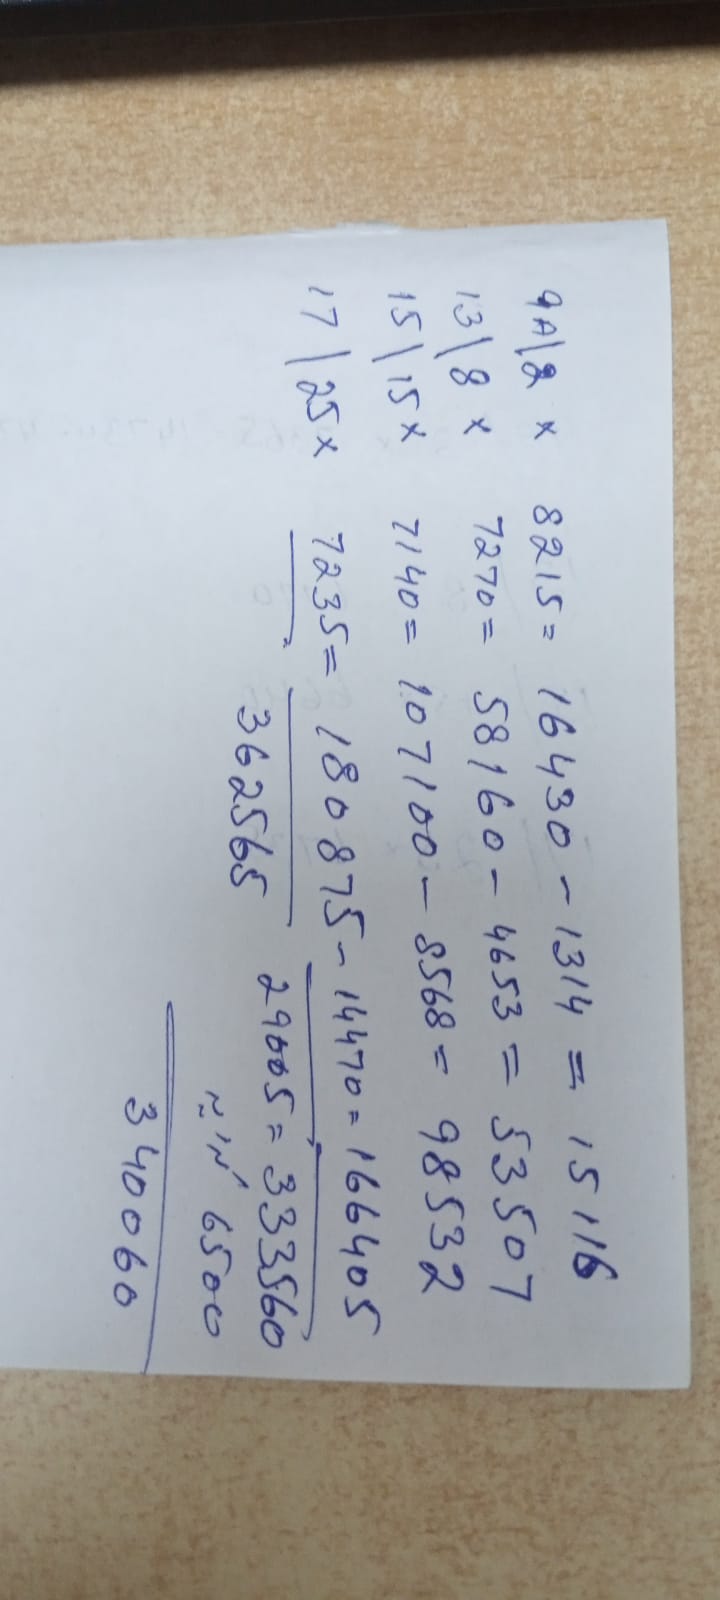 9A\2 x 8215 = 16430 - 1314 = 15116
13\8 x 7270 = 58160 - 4653 = 53507
15\15x 7140 = 107100 - 8568 = 98532
17\25x 7235 = 180875 - 14470 = 166405
362565 29005 = 333560
6500
340060